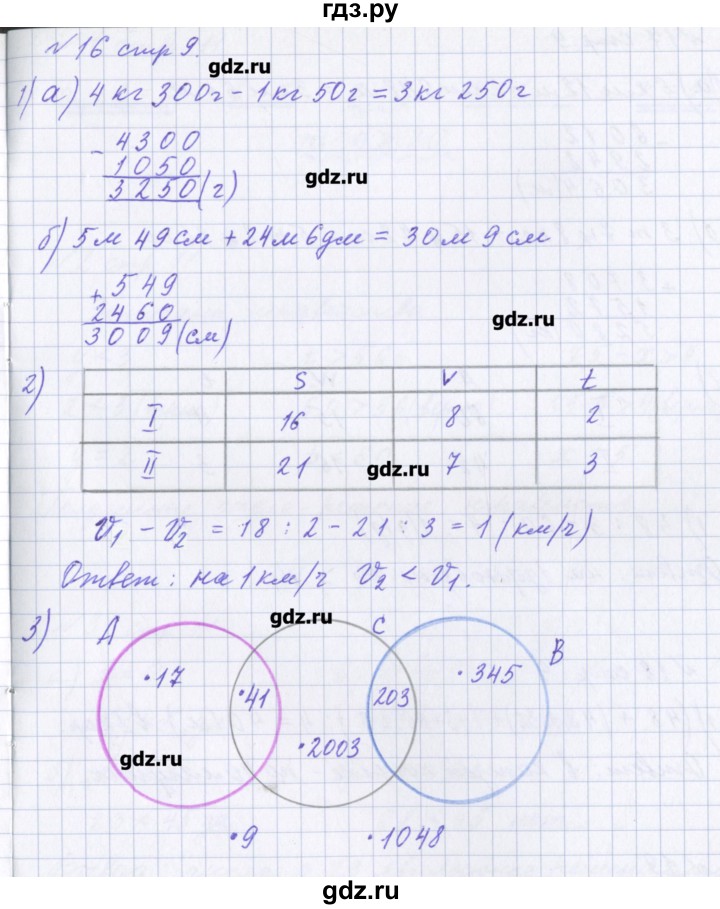 гдз.ру
№16 стр 9.
gdz.ru
1) а) 4 кг 300 г - 1 кг 50 г = 3 кг 250 г
- 4300
1050
3250 (г)
gdz.ru
б) 5 м 49 см + 24 м 6 дм = 30 м 9 см
+ 549
2460
3009 (см)
gdz.ru
2)
S V t
I 16 8 2
II 21 7 3
gdz.ru
V₁ - V₂ = 18 : 2 - 21 : 3 = 1 (км/ч)
Ответ: на 1 км/ч V₂ < V₁.
gdz.ru
3) A C B
·17 ·41 203 ·345
·2003
gdz.ru
·9 ·1048
gdz.ru